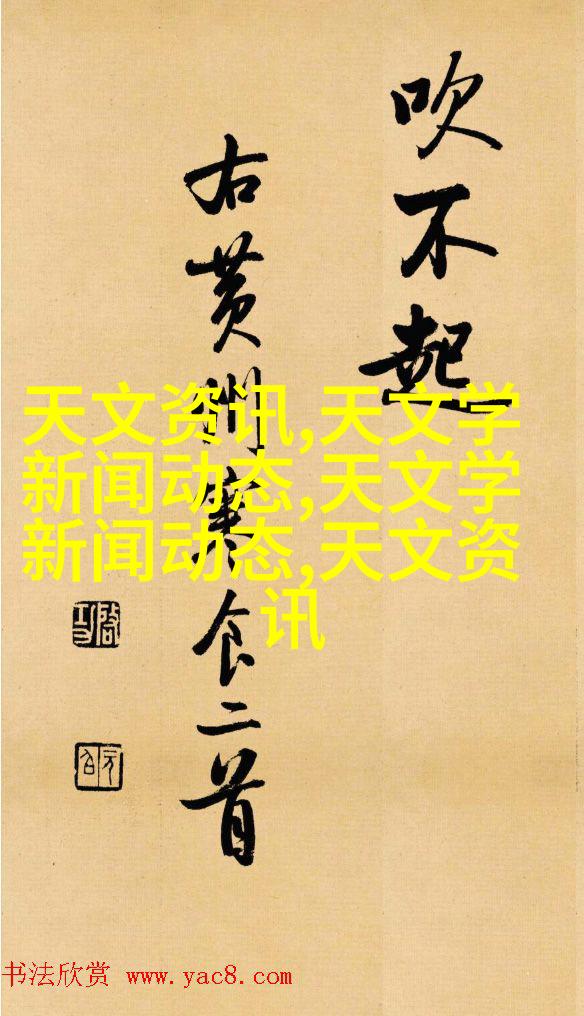 吹不起
右黄州寒食二首
天文资讯,天文学
新闻动态,天文学
新闻动态,天文资
讯
启功
元白
书法欣赏 www.yac8.com